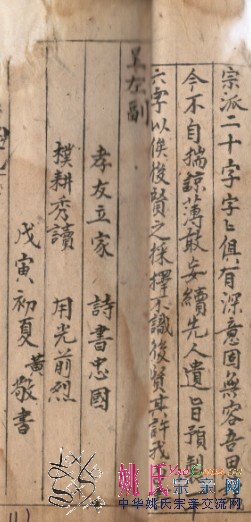 宗派二十字字々俱有深意固無容吾曹
今不自揣諒薄敢妄續先人遺旨預製十
六字以俟後賢之採擇不識後賢其許我
呈左副
孝友立家 詩書忠國
樸耕秀讀 用光前烈
戊寅初夏 黃敬書
姚氏宗亲网
中华姚氏宗亲交流网